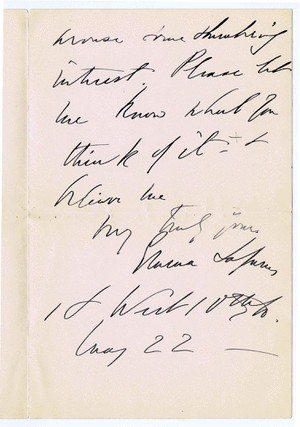 arouse some
interest. Please let
me know what you
think of it - &
believe me
very truly yours
Emma Lazarus
18 West 10th St.
May 22 —